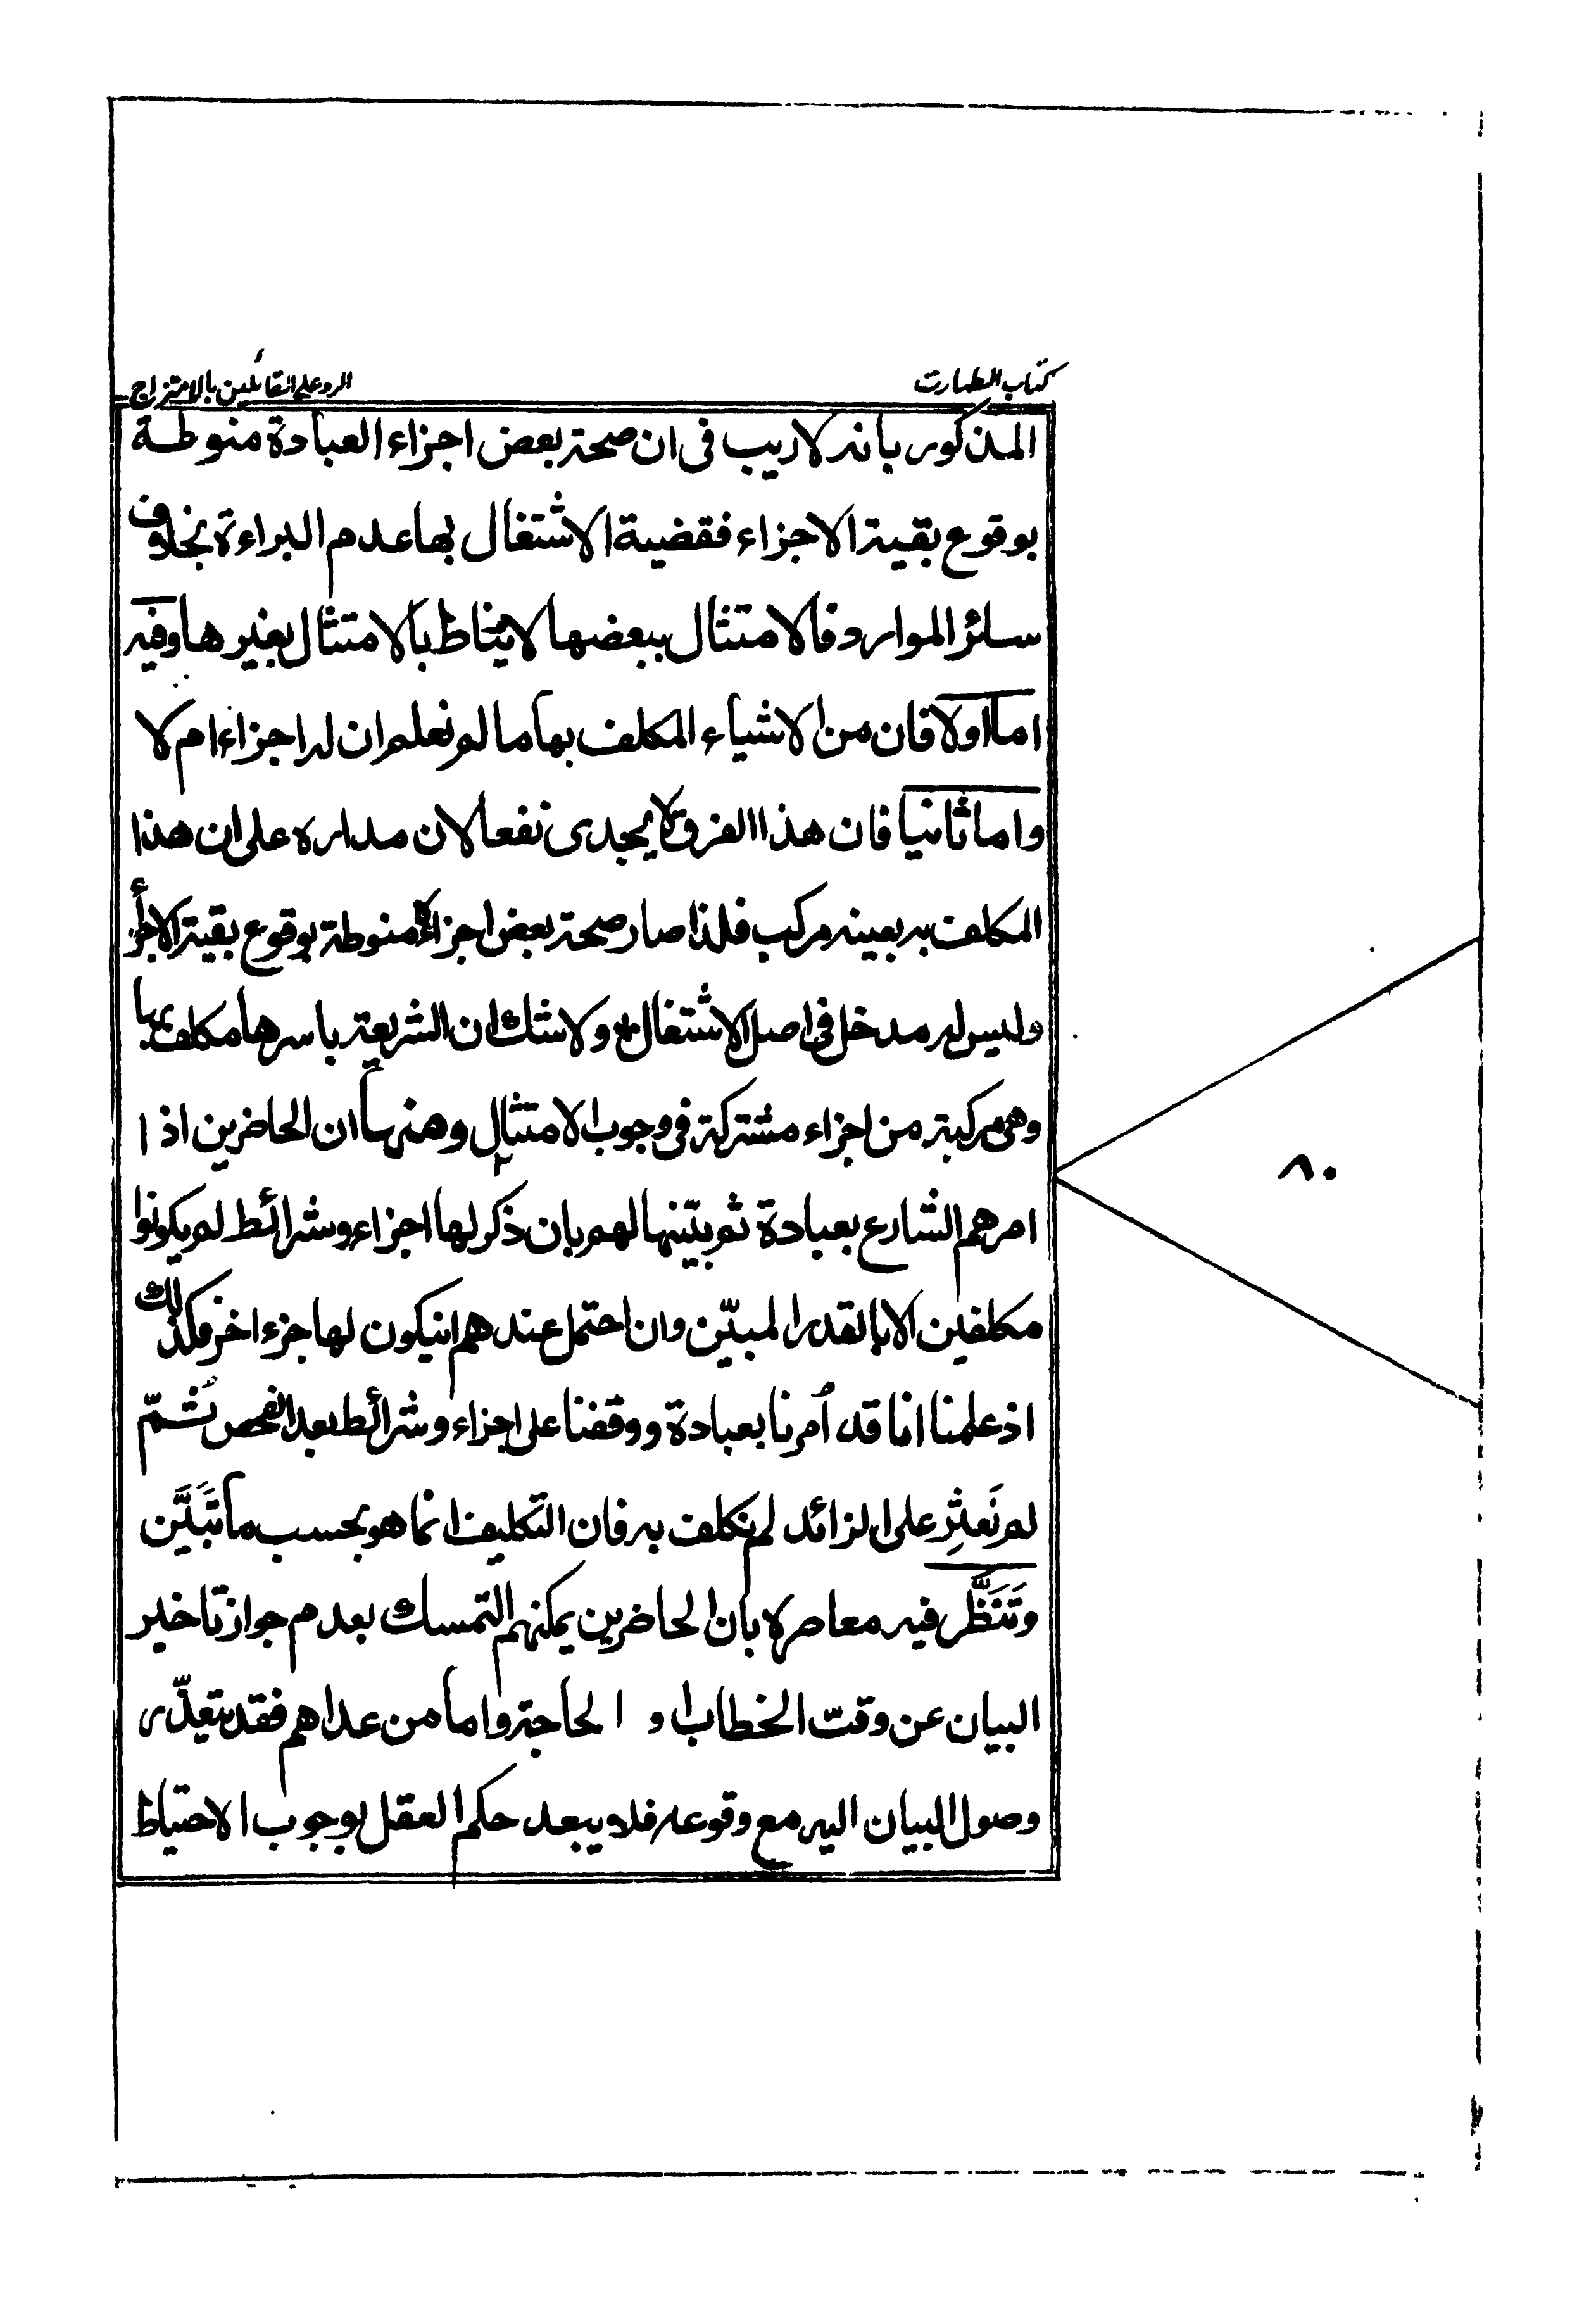 كتاب الطهارت
الرد على القائلين بالامتزاج
المذكور بانه لاريب فى ان صحة بعض اجزاء العبادة منوطة
بوقوع بقية الاجزاء فقضية الاشتغال بها عدم البراءة بخلاف
سائر الموارد فالامتثال ببعضها لايناط بالامتثال بغيرها وفيه
اما اولا فان من الاشياء المكلف بها ما لم نعلم ان له اجزاء ام لا
واما ثانيا فان هذا الفرق لايجدى نفعا لان مداره على ان هذا
المكلف به بعينه مركب فلذا صار صحة بعض اجزائه منوطة بوقوع بقية الاجزاء
وليس له مدخل فى اصل الاشتغال ولاشك ان الشريعة باسرها مكلف بها
وهى مركبة من اجزاء مشتركة فى وجوب الامتثال ومنها ان الحاضرين اذا
امرهم الشارع بعبادة ثم بيّنها لهم بان ذكر لها اجزاء وشرائط لم يكونوا
مكلفين الا بالقدر المبيّن وان احتمل عندهم انيكون لها جزء اخر فكذلك
اذ علمنا انا قد أمرنا بعبادة ووقفنا على اجزاء وشرائط بعد الفحص ثمّ
لم نَعثِر على الزائد لم نكلف به فان التكليف انما هو بحسب ما تَبَيَّن
وتَنَظَّر فيه معاصره بان الحاضرين يمكنهم التمسك بعدم جواز تاخير
البيان عن وقت الخطاب او الحاجة واما من عداهم فقد يتعذّر
وصول البيان اليه مع وقوعه فلا يبعد حكم العقل بوجوب الاحتياط
٨٠